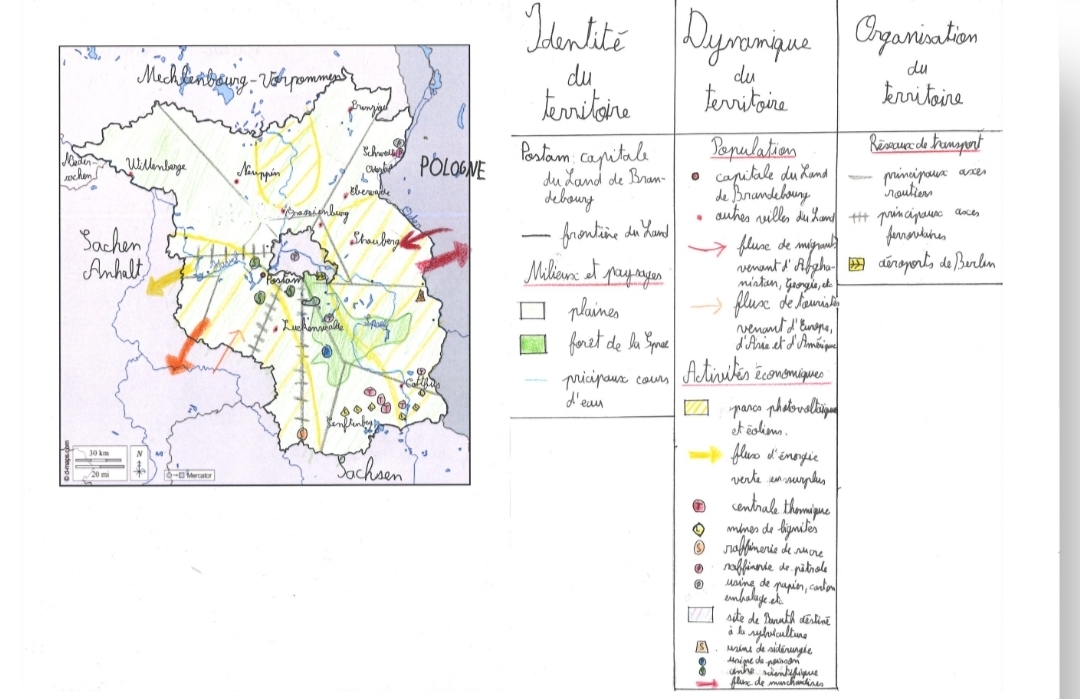 Mecklenbourg-Vorpommen
Prenzlau
Schwedt
POLOGNE
Wittenberge
Neuruppin
Eberswalde
Oranienburg
Oder
Strauberg
Sachen
Anhalt
Havel
Postam
Luckenwalde
Spree
Cottbus
Senftenberg
Sachsen
30 km
20 mi
N
Mercator
© d-maps.com
Identité
du
territoire
Postam: capitale
du Land de Bran-
debourg
frontière du Land
Milieux et paysages
plaines
forêt de la Spree
pricipaux cours
d'eau
Dynamique
du
territoire
Population
capitale du Land
de Brandebourg
autres villes du Land
flux de migrants
venant d'Afgha-
nistan, Georgie, etc
flux de touristes
venant d'Europe,
d'Asie et d'Amérique
Activités économiques
parcs photovoltaïques
et éoliens.
flux d'énergie
verte en surplus
T
centrale thermique
L
mines de lignites
S
raffinerie de sucre
P
raffinerie de pétrole
P
usine de papier, carton
embalage etc
site de Baruth destiné
à la sylviculture
S
usine de sidérurgie
P
usine de poisson
S
centre scientifique
flux de marchandises
Organisation
du
territoire
Réseaux de transport
principaux axes
routiers
principaux axes
ferroviaires
aéroports de Berlin